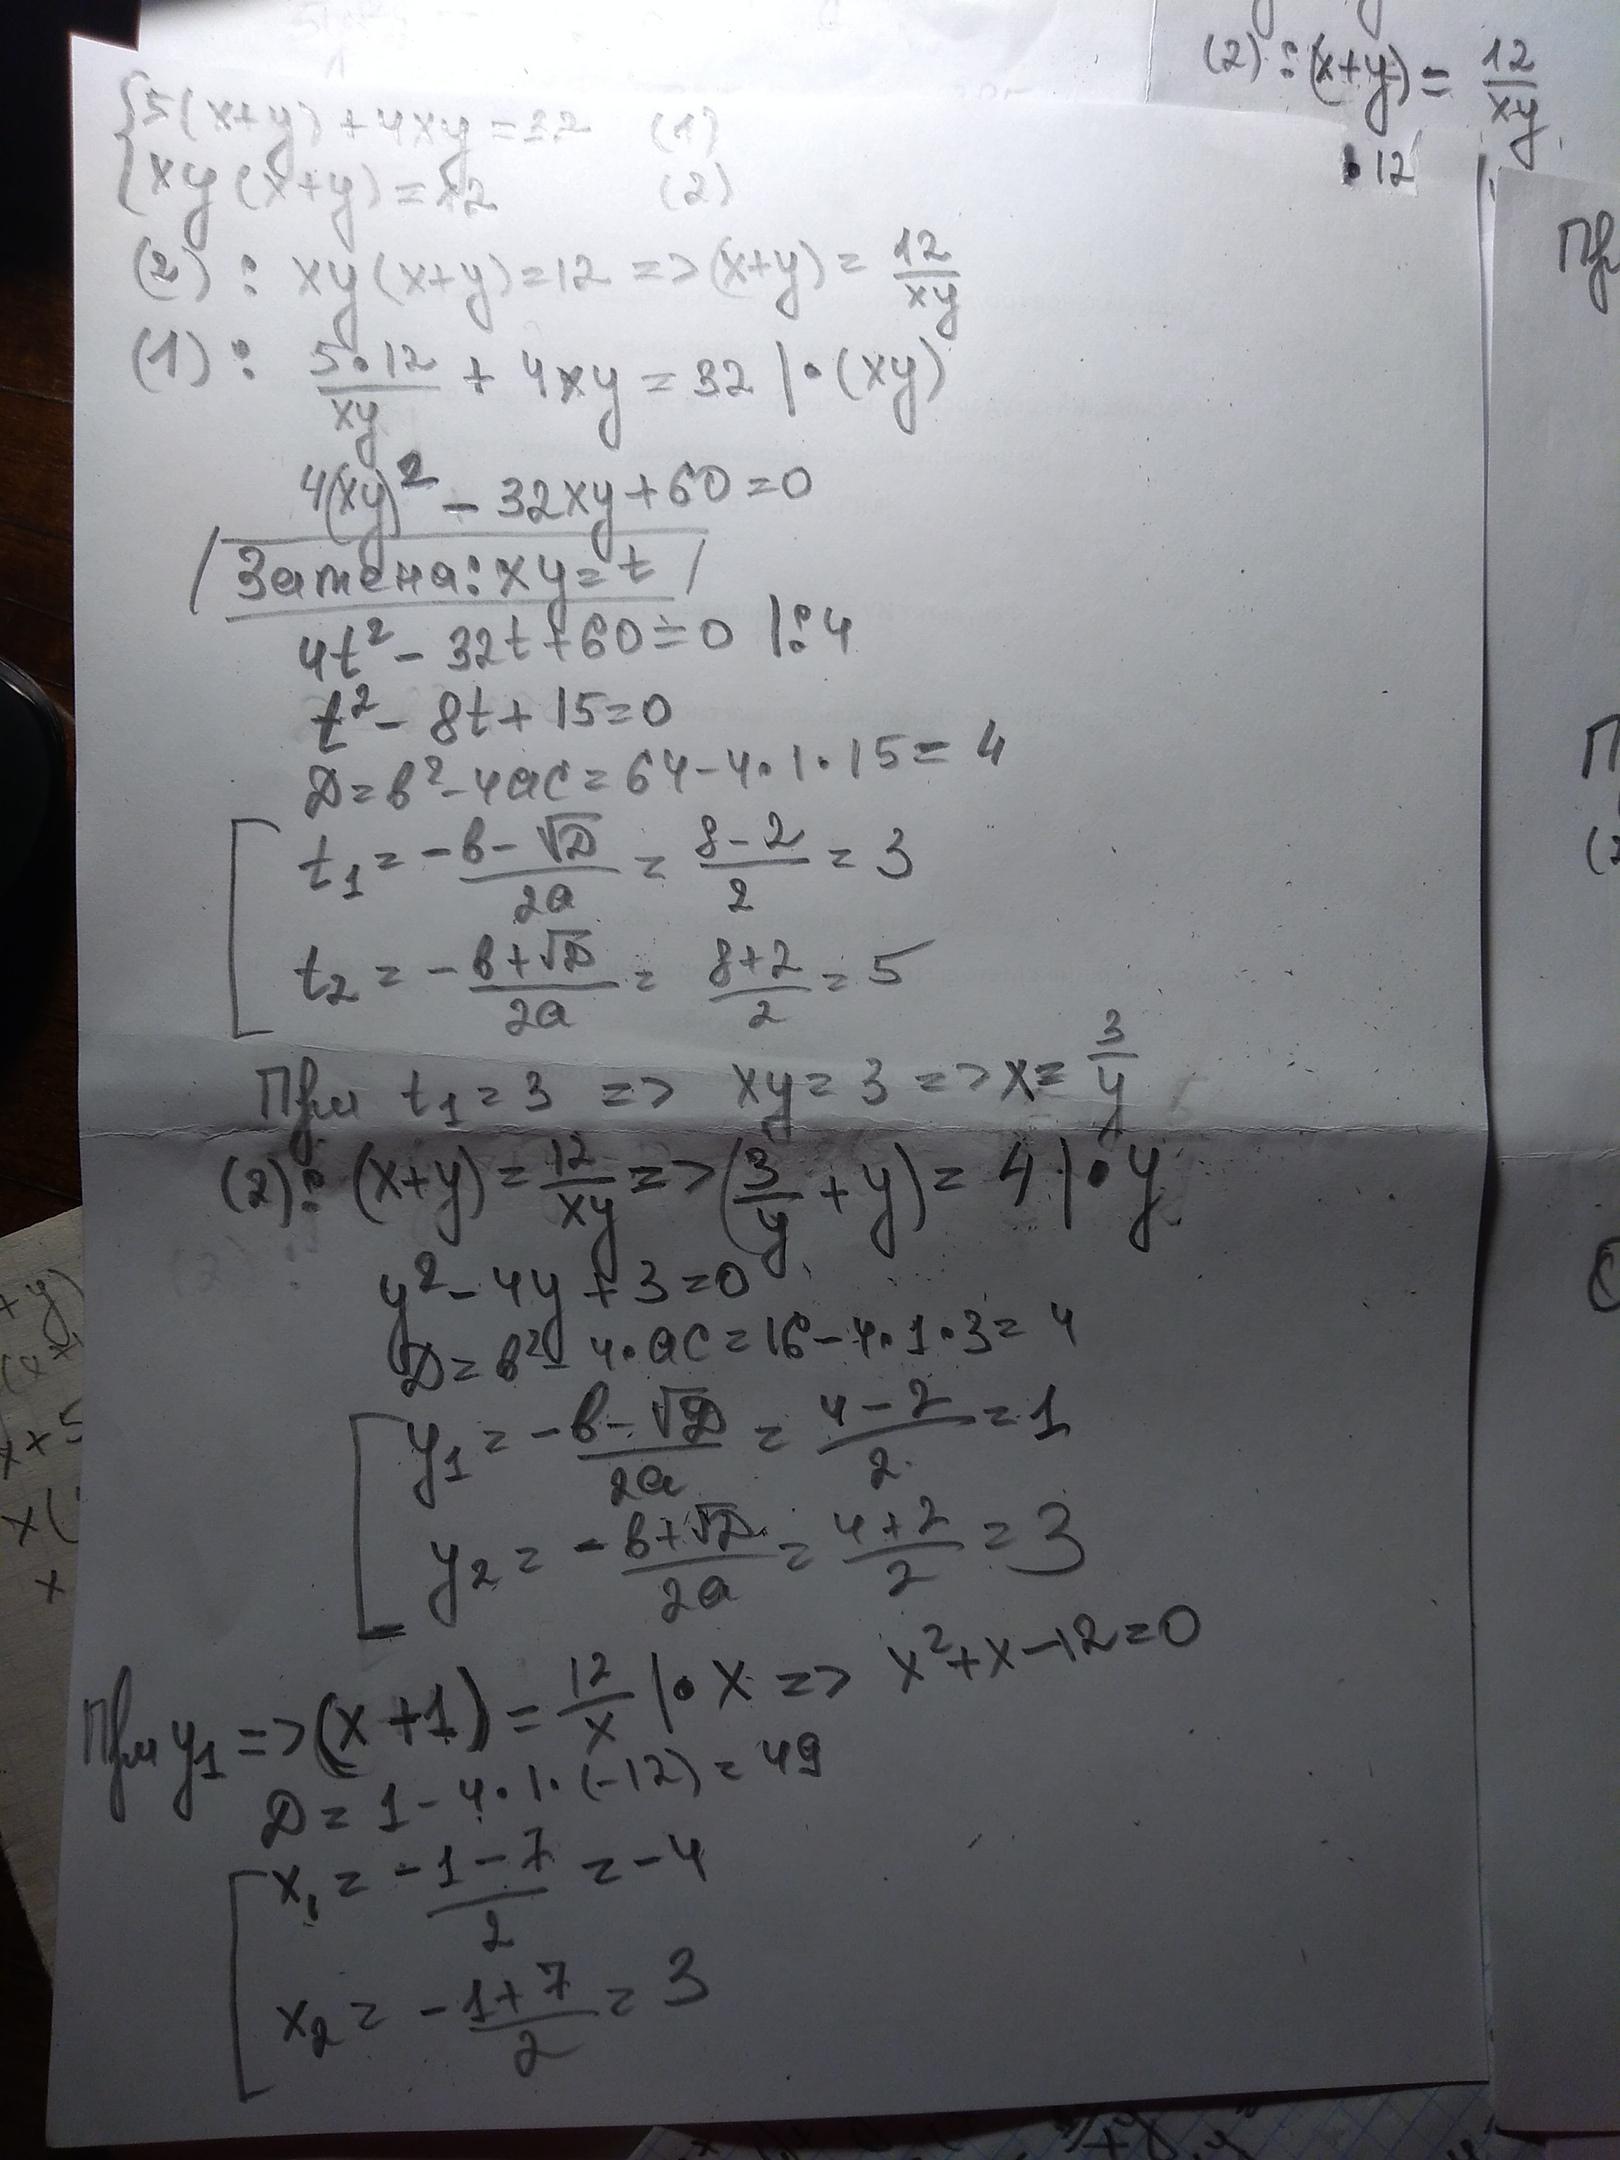 (2) : (x+y) = 12/xy
• 12
{5(x+y)+4xy=32 (1)
{xy(x+y)=12 (2)
(2) : xy(x+y)=12 => (x+y) = 12/xy
(1) : 5•12/xy + 4xy = 32 |•(xy)
4(xy)² - 32xy+60=0
/Замена: xy=t/
4t² - 32t+60=0 |:4
t² - 8t+15=0
D=b²-4ac=64-4•1•15=4
[t1 = -b-√D/2a = 8-2/2 = 3
t2 = -b+√D/2a = 8+2/2 = 5
При t1=3 => xy=3 => x=3/y
(2): (x+y)=12/xy => (3/y+y)=4|•y
y²-4y+3=0
D=b²-4•ac=16-4•1•3=4
[y1 = -b-√D/2a = 4-2/2 = 1
y2 = -b+√D/2a = 4+2/2 = 3
При y1 => (x+1)=12/x |•x => x²+x-12=0
D=1-4•1•(-12)=49
[x1 = -1-7/2 = -4
x2 = -1+7/2 = 3